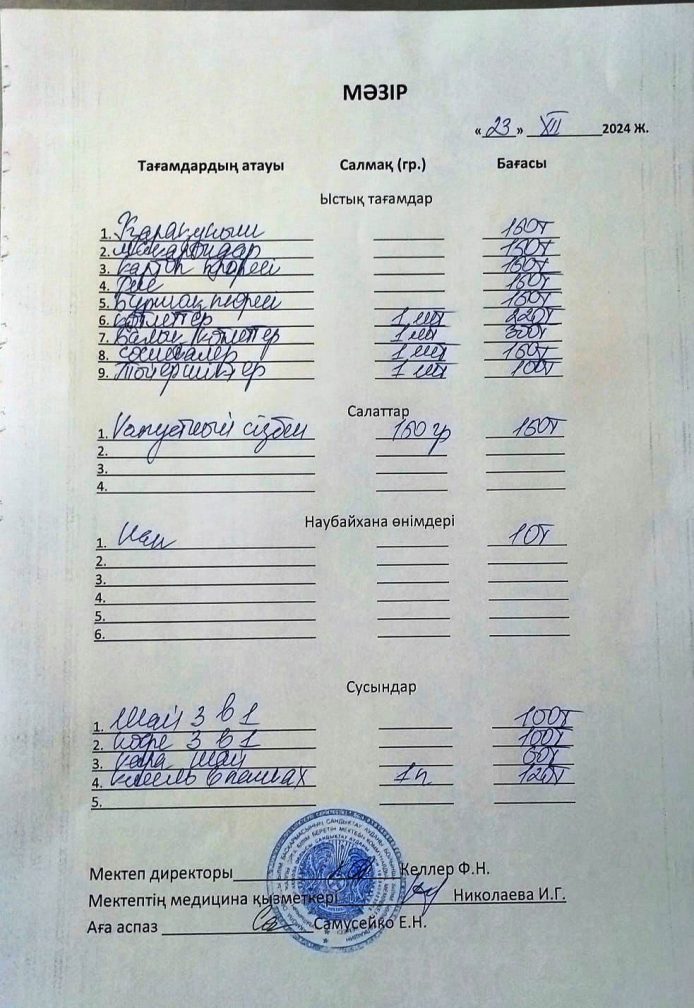 МӘЗІР
« 23 » XII 2024 Ж.
Тағамдардың атауы Салмақ (гр.) Бағасы
Ыстық тағамдар
1. Қарақұмық 150т
2. макарондар 150т
3. картоп пюресі 150т
4. 150т
5. Бұршақ пюресі 150т
6. котлеттер 1 шт 220т
7. Балық котлеттер 1 шт 300т
8. сосискалер 1 шт 150т
9. 1 шт 100т
Салаттар
1. Капустный сізбен 150 гр 150т
2.
3.
4.
Наубайхана өнімдері
1. Нан 10т
2.
3.
4.
5.
6.
Сусындар
1. Шай 3 в 1 100т
2. кофе 3 в 1 100т
3. кара шай 60т
4. кисель в 1п 120т
5.
Мектеп директоры Келлер Ф.Н.
Мектептің медицина қызметкері Николаева И.Г.
Аға аспаз Самусейко Е.Н.